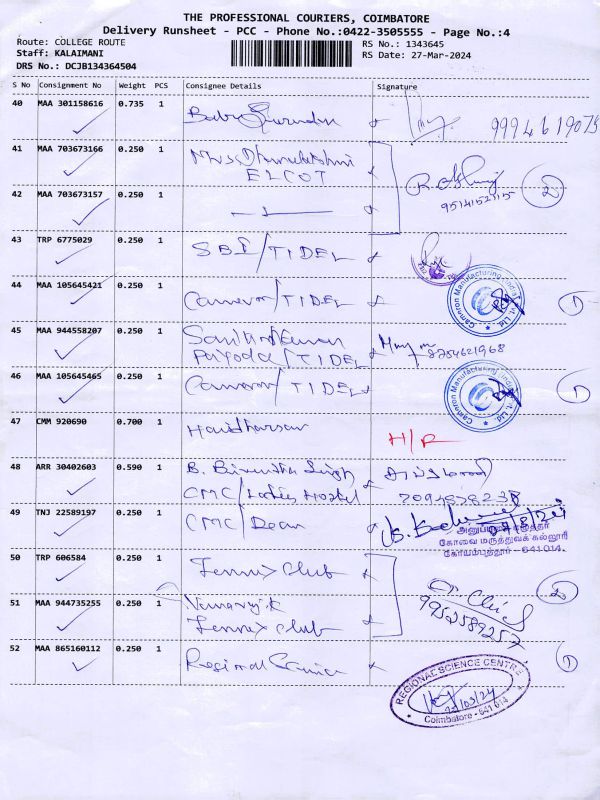 THE PROFESSIONAL COURIERS, COIMBATORE
Delivery Runsheet - PCC - Phone No.:0422-3505555 - Page No.:4
Route: COLLEGE ROUTE
Staff: KALAIMANI
DRS No.: DCJB134364504
RS No.: 1343645
RS Date: 27-Mar-2024
S No Consignment No Weight PCS Consignee Details Signature
40 MAA 301158616 0.735 1 Baby
41 MAA 703673166 0.250 1 Mrs. Dhanalakshmi
ELCOT
42 MAA 703673157 0.250 1 2
43 TRP 6775029 0.250 1 SBI/TIDEL
44 MAA 105645421 0.250 1 Cameron/TIDEL 1
Cameron Manufacturing (India) Pvt. Ltd.
45 MAA 944558207 0.250 1
Payoda/TIDEL 8754621968
46 MAA 105645465 0.250 1 Cameron/TIDEL 1
Cameron Manufacturing (India) Pvt. Ltd.
47 CMM 920690 0.700 1 Hariharsan H/R
48 ARR 30402603 0.590 1 B. Singh
CMC/Ladies Hostel
49 TNJ 22589197 0.250 1 CMC/Dean
கோவை மருத்துவக் கல்லூரி
கோயம்புத்தூர் - 641 014.
50 TRP 606584 0.250 1 Tennis Club 2
51 MAA 944735255 0.250 1
Tennis Club 9952589257
52 MAA 865160112 0.250 1 Regional Science 1
REGIONAL SCIENCE CENTRE
Coimbatore - 641 014